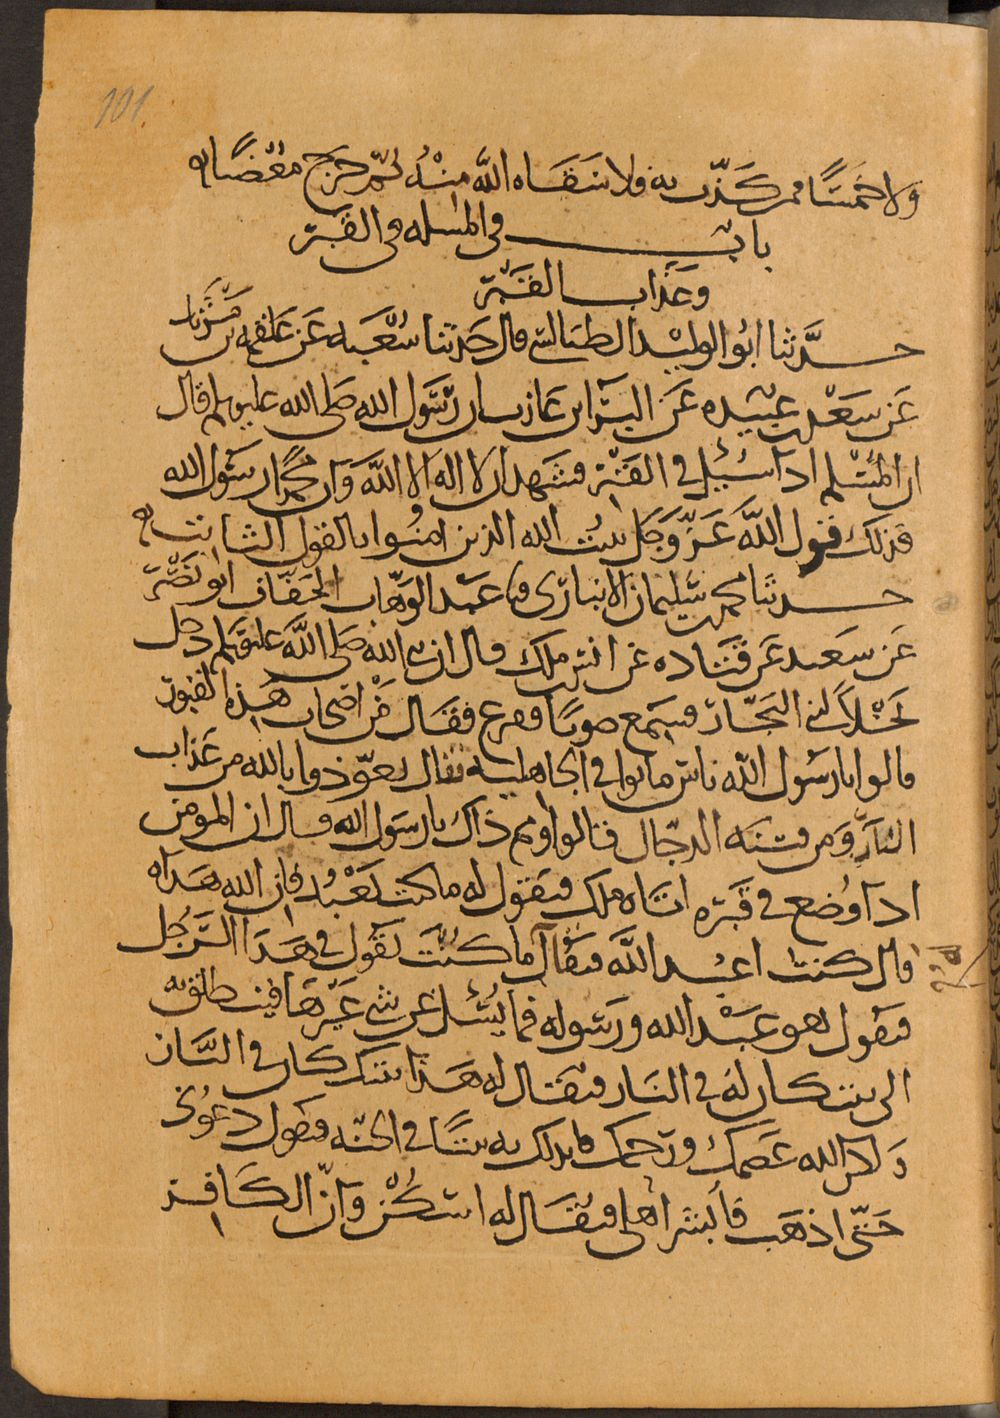 101
ولا خمسًا فمن كذب به فلا سقاه الله منه ثم خرج مغضبًا
باب في المسله في القبر
وعذاب القبر
حدثنا ابو الوليد الطيالسي قال حدثنا شعبه عن علقمه بن مرثد
عن سعد بن عبيده عن البرا بن عازب ان رسول الله صلى الله عليه وسلم قال
ان المسلم اذا سئل في القبر فشهد ان لا اله الا الله وان محمدا رسول الله
فذلك قول الله عز وجل يثبت الله الذين امنوا بالقول الثابت
حدثنا محمد بن سليمان الانباري نا عبد الوهاب الخفاف ابو نصر
عن سعيد عن قتاده عن انس بن ملك قال ان نبي الله صلى الله عليه وسلم دخل
نخلًا لبني النجار فسمع صوتًا ففزع فقال من اصحاب هذه القبور
قالوا يا رسول الله ناس ماتوا في الجاهليه فقال تعوذوا بالله من عذاب
النار ومن فتنه الدجال قالوا ومم ذاك يا رسول الله قال ان المومن
اذا وضع في قبره اتاه ملك فيقول له ما كنت تعبد فان الله هداه
قال كنت اعبد الله فيقال ما كنت تقول في هذا الرجل
فيقول هو عبد الله ورسوله فما يسئل عن شي غيرها فينطلق به
الى بيت كان له في النار فيقال له هذا بيتك كان في النار
ولكن الله عصمك ورحمك فابدلك به بيتًا في الجنه فيقول دعوني
حتى اذهب فابشر اهلي فيقال له اسكن وان الكافر